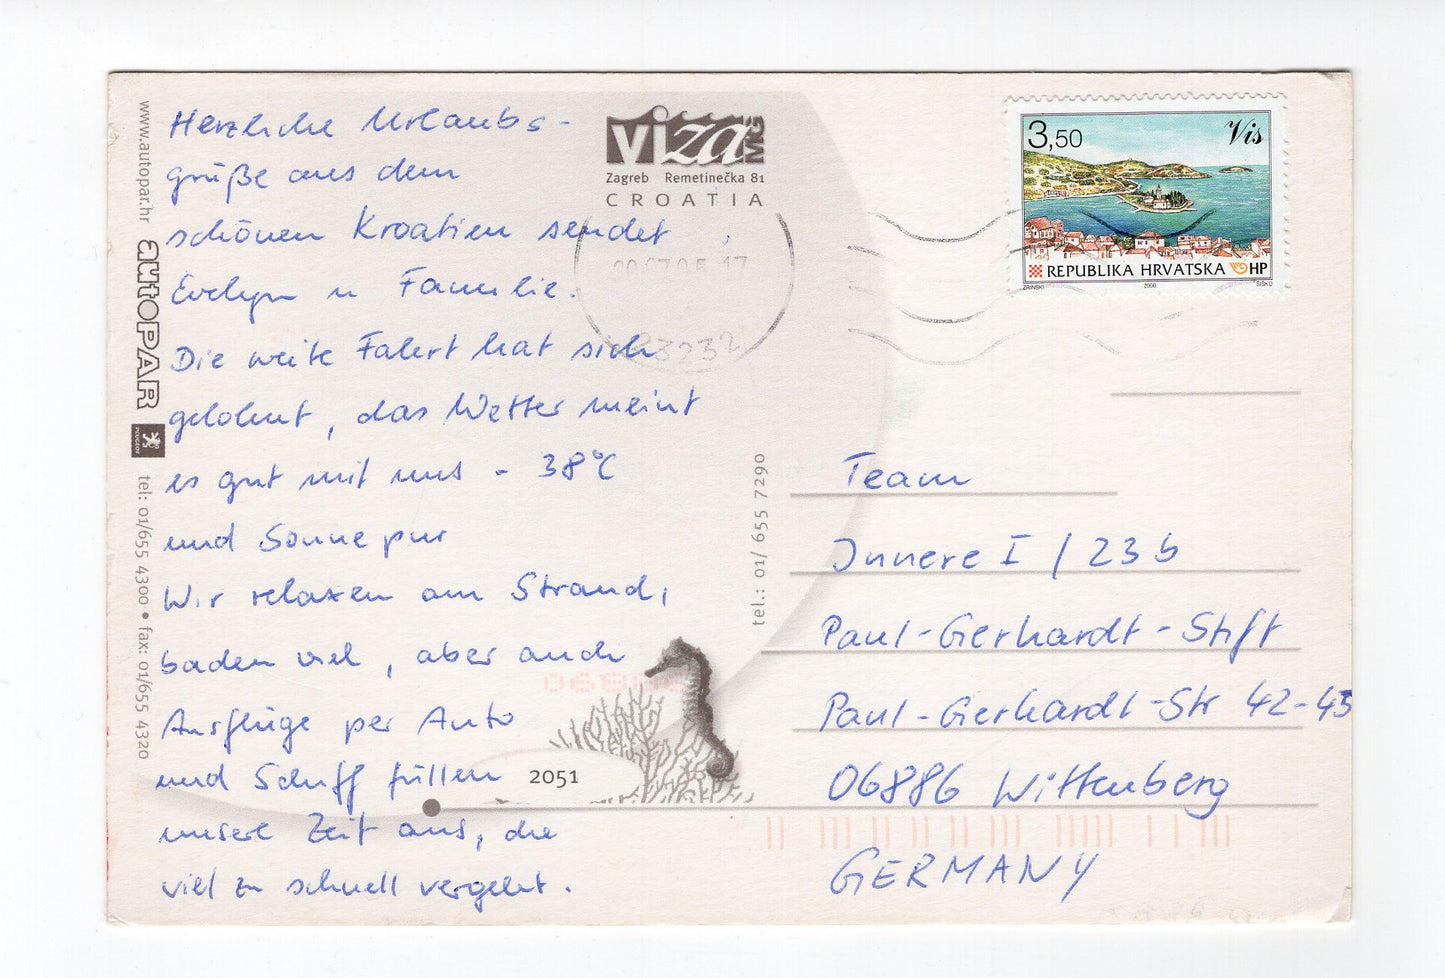 Herzliche Urlaubs-
grüße aus dem
schönen Kroatien sendet
Evelyn u Familie.
Die weite Fahrt hat sich
gelohnt, das Wetter meint
es gut mit uns - 38°C
und Sonne pur
Wir relaxen am Strand,
baden viel, aber auch
Ausflüge per Auto
und Schiff füllen
unsere Zeit aus, die
viel zu schnell vergeht.
www.autopar.hr
autoPAR
PEUGEOT
tel: 01/655 4300 • fax: 01/655 4320
viza MG
Zagreb Remetinečka 81
CROATIA
tel.: 01/ 655 7290
2051
23232
3,50
Vis
REPUBLIKA HRVATSKA HP
ZRINSKI 2000. ŠIŠKO
Team
Innere I / 23b
Paul-Gerhardt-Stift
Paul-Gerhardt-Str 42-45
06886 Wittenberg
GERMANY